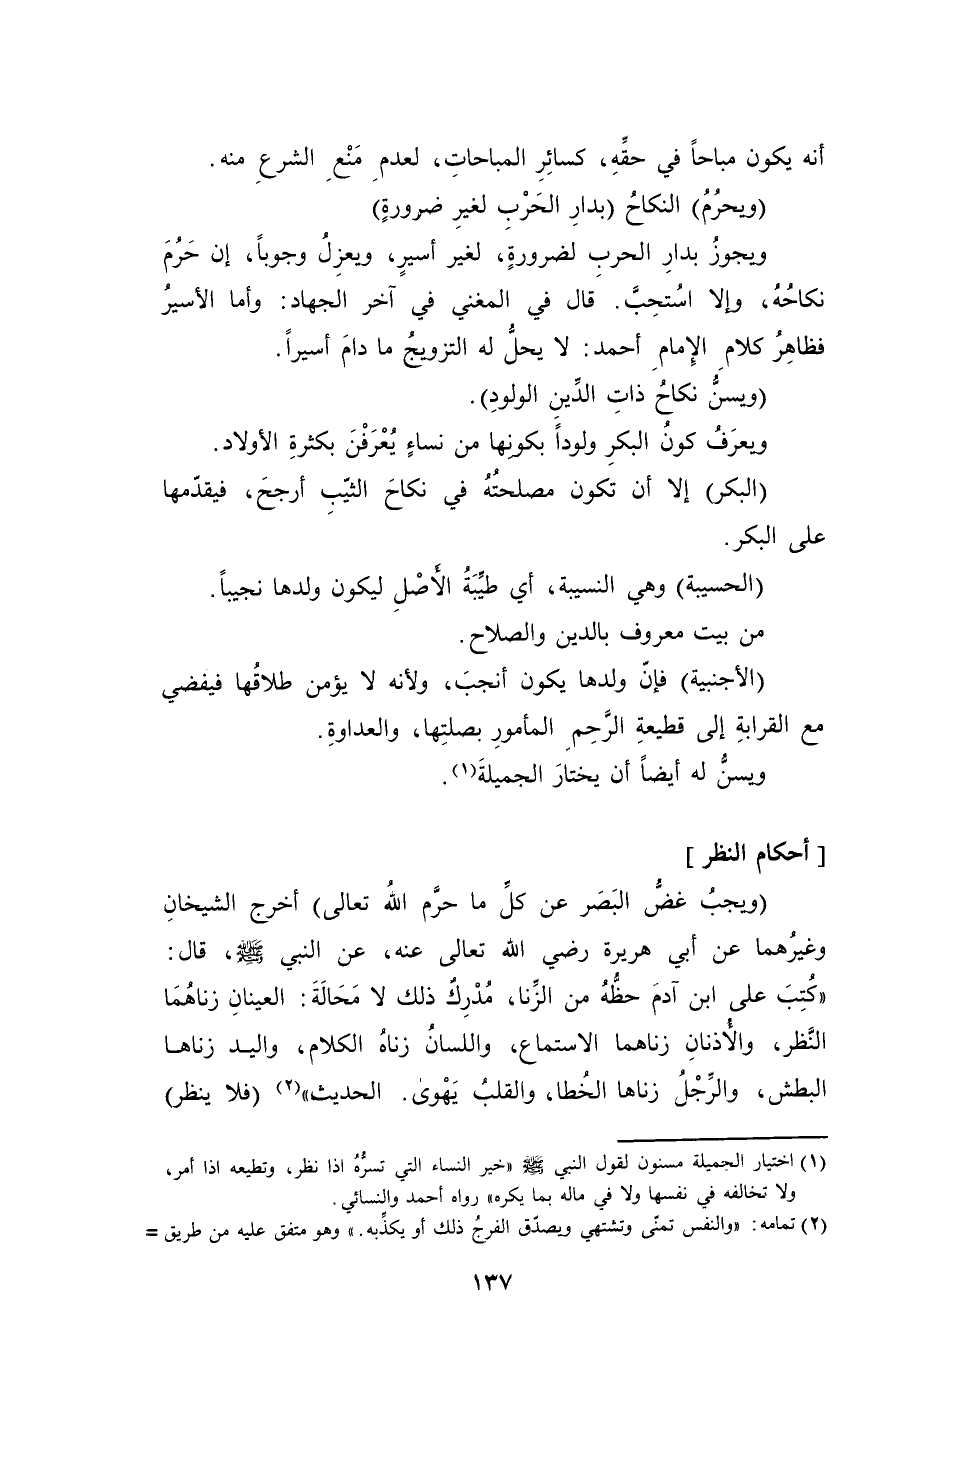 أنه يكون مباحاً في حقِّهِ، كسائِرِ المباحاتِ، لعدمِ مَنْعِ الشرعِ منه.
(ويحرُمُ) النكاحُ (بدارِ الحَرْبِ لغيرِ ضرورةٍ)
ويجوزُ بدارِ الحربِ لضرورةٍ، لغير أسيرٍ، ويعزِلُ وجوباً، إن حَرُمَ
نكاحُهُ، وإلا اسُتحِبَّ. قال في المغني في آخر الجهاد: وأما الأسيرُ
فظاهِرُ كلامِ الإِمامِ أحمد: لا يحلُّ له التزويجُ ما دامَ أسيراً.
(ويسنُّ نكاحُ ذاتِ الدِّينِ الولودِ).
ويعرَفُ كونُ البكرِ ولوداً بكونِها من نساءٍ يُعْرَفْنَ بكثرةِ الأولاد.
(البكر) إلا أن تكون مصلحتُهُ في نكاحَ الثيّبِ أرجحَ، فيقدّمها
على البكر.
(الحسيبة) وهي النسيبة، أي طيِّبَةُ الأَصْلِ ليكون ولدها نجيباً.
من بيت معروف بالدين والصلاح.
(الأجنبية) فإنّ ولدها يكون أنجبَ، ولأنه لا يؤمن طلاقُها فيفضي
مع القرابةِ إلى قطيعةِ الرَّحِمِ المأمورِ بصلتِها، والعداوةِ.
ويسنُّ له أيضاً أن يختارَ الجميلةَ(١).
[ أحكام النظر ]
(ويجبُ غضُّ البَصَر عن كلِّ ما حرَّم اللهُ تعالى) أخرج الشيخانِ
وغيرُهما عن أبي هريرة رضي الله تعالى عنه، عن النبي ﷺ، قال:
«كُتِبَ على ابن آدمَ حظُّهُ من الزِّنا، مُدْرِكٌ ذلك لا مَحَالَةَ: العينانِ زناهُمَا
النَّظر، والأُذنانِ زناهما الاستماع، واللسانُ زناهُ الكلام، واليد زناها
البطش، والرِّجْلُ زناها الخُطا، والقلبُ يَهْوىٰ. الحديث»(٢) (فلا ينظر)
(١) اختيار الجميلة مسنون لقول النبي ﷺ «خير النساء التي تسرُّهُ اذا نظر، وتطيعه اذا أمر،
ولا تخالفه في نفسها ولا في ماله بما يكره» رواه أحمد والنسائي.
(٢) تمامه: «والنفس تمنّى وتشتهي ويصدّق الفرجُ ذلك أو يكذِّبه.» وهو متفق عليه من طريق =
١٣٧